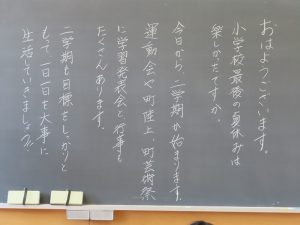 おはようございます。
小学校最後の夏休みは
楽しかたですか。
今日から、二学期が始まります。
運動会や町陸上、町芸術祭
に学習発表会と、行事も
たくさんあります。
二学期も目標をしっかりと
もって、一日一日を大事に
生活していきましょう!!